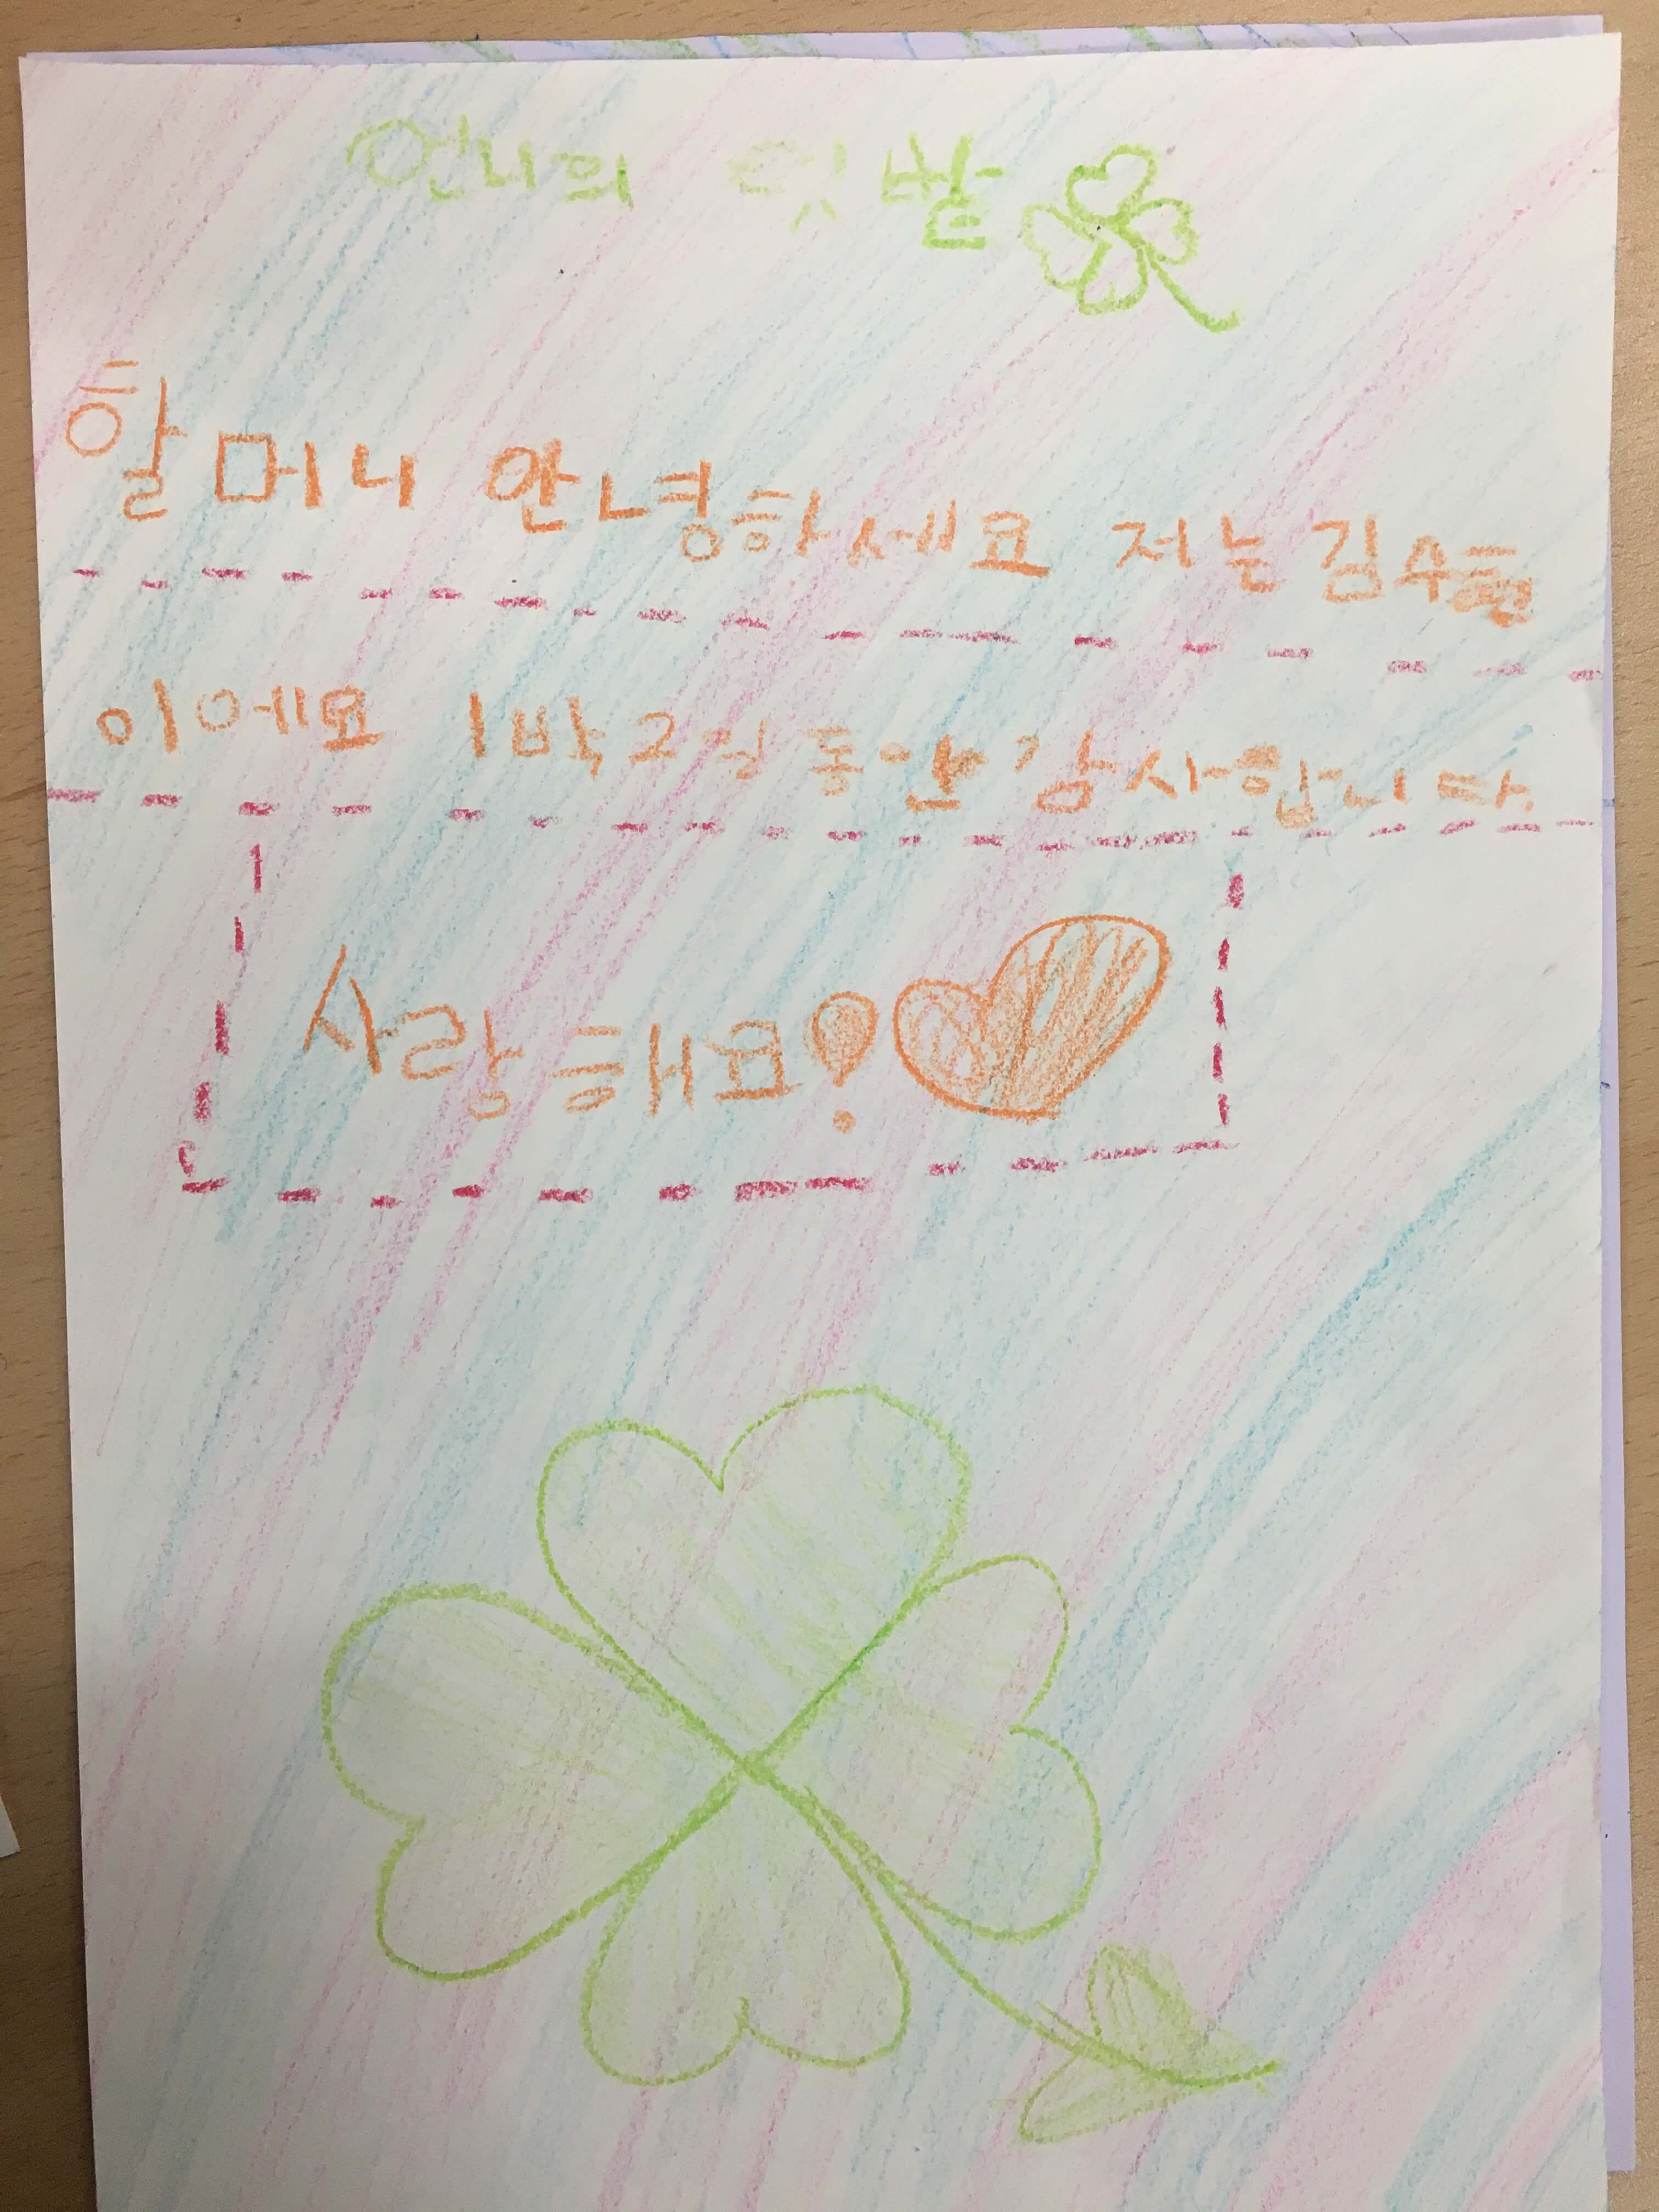 언니의 텃밭
할머니 안녕하세요 저는
이에요 1박2일 동안 감사합니다.
사랑해요!